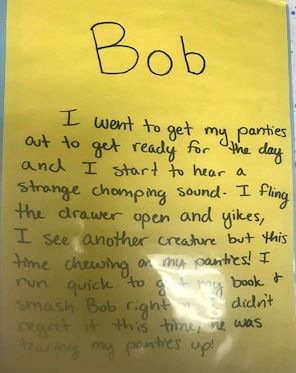 Bob
I went to get my panties
out to get ready for the day
and I start to hear a
strange chomping sound. I fling
the drawer open and yikes,
I see another creature but this
time chewing on my panties! I
run quick to get my book &
smash Bob right didn't
regret it this time, he was
tearing my panties up!